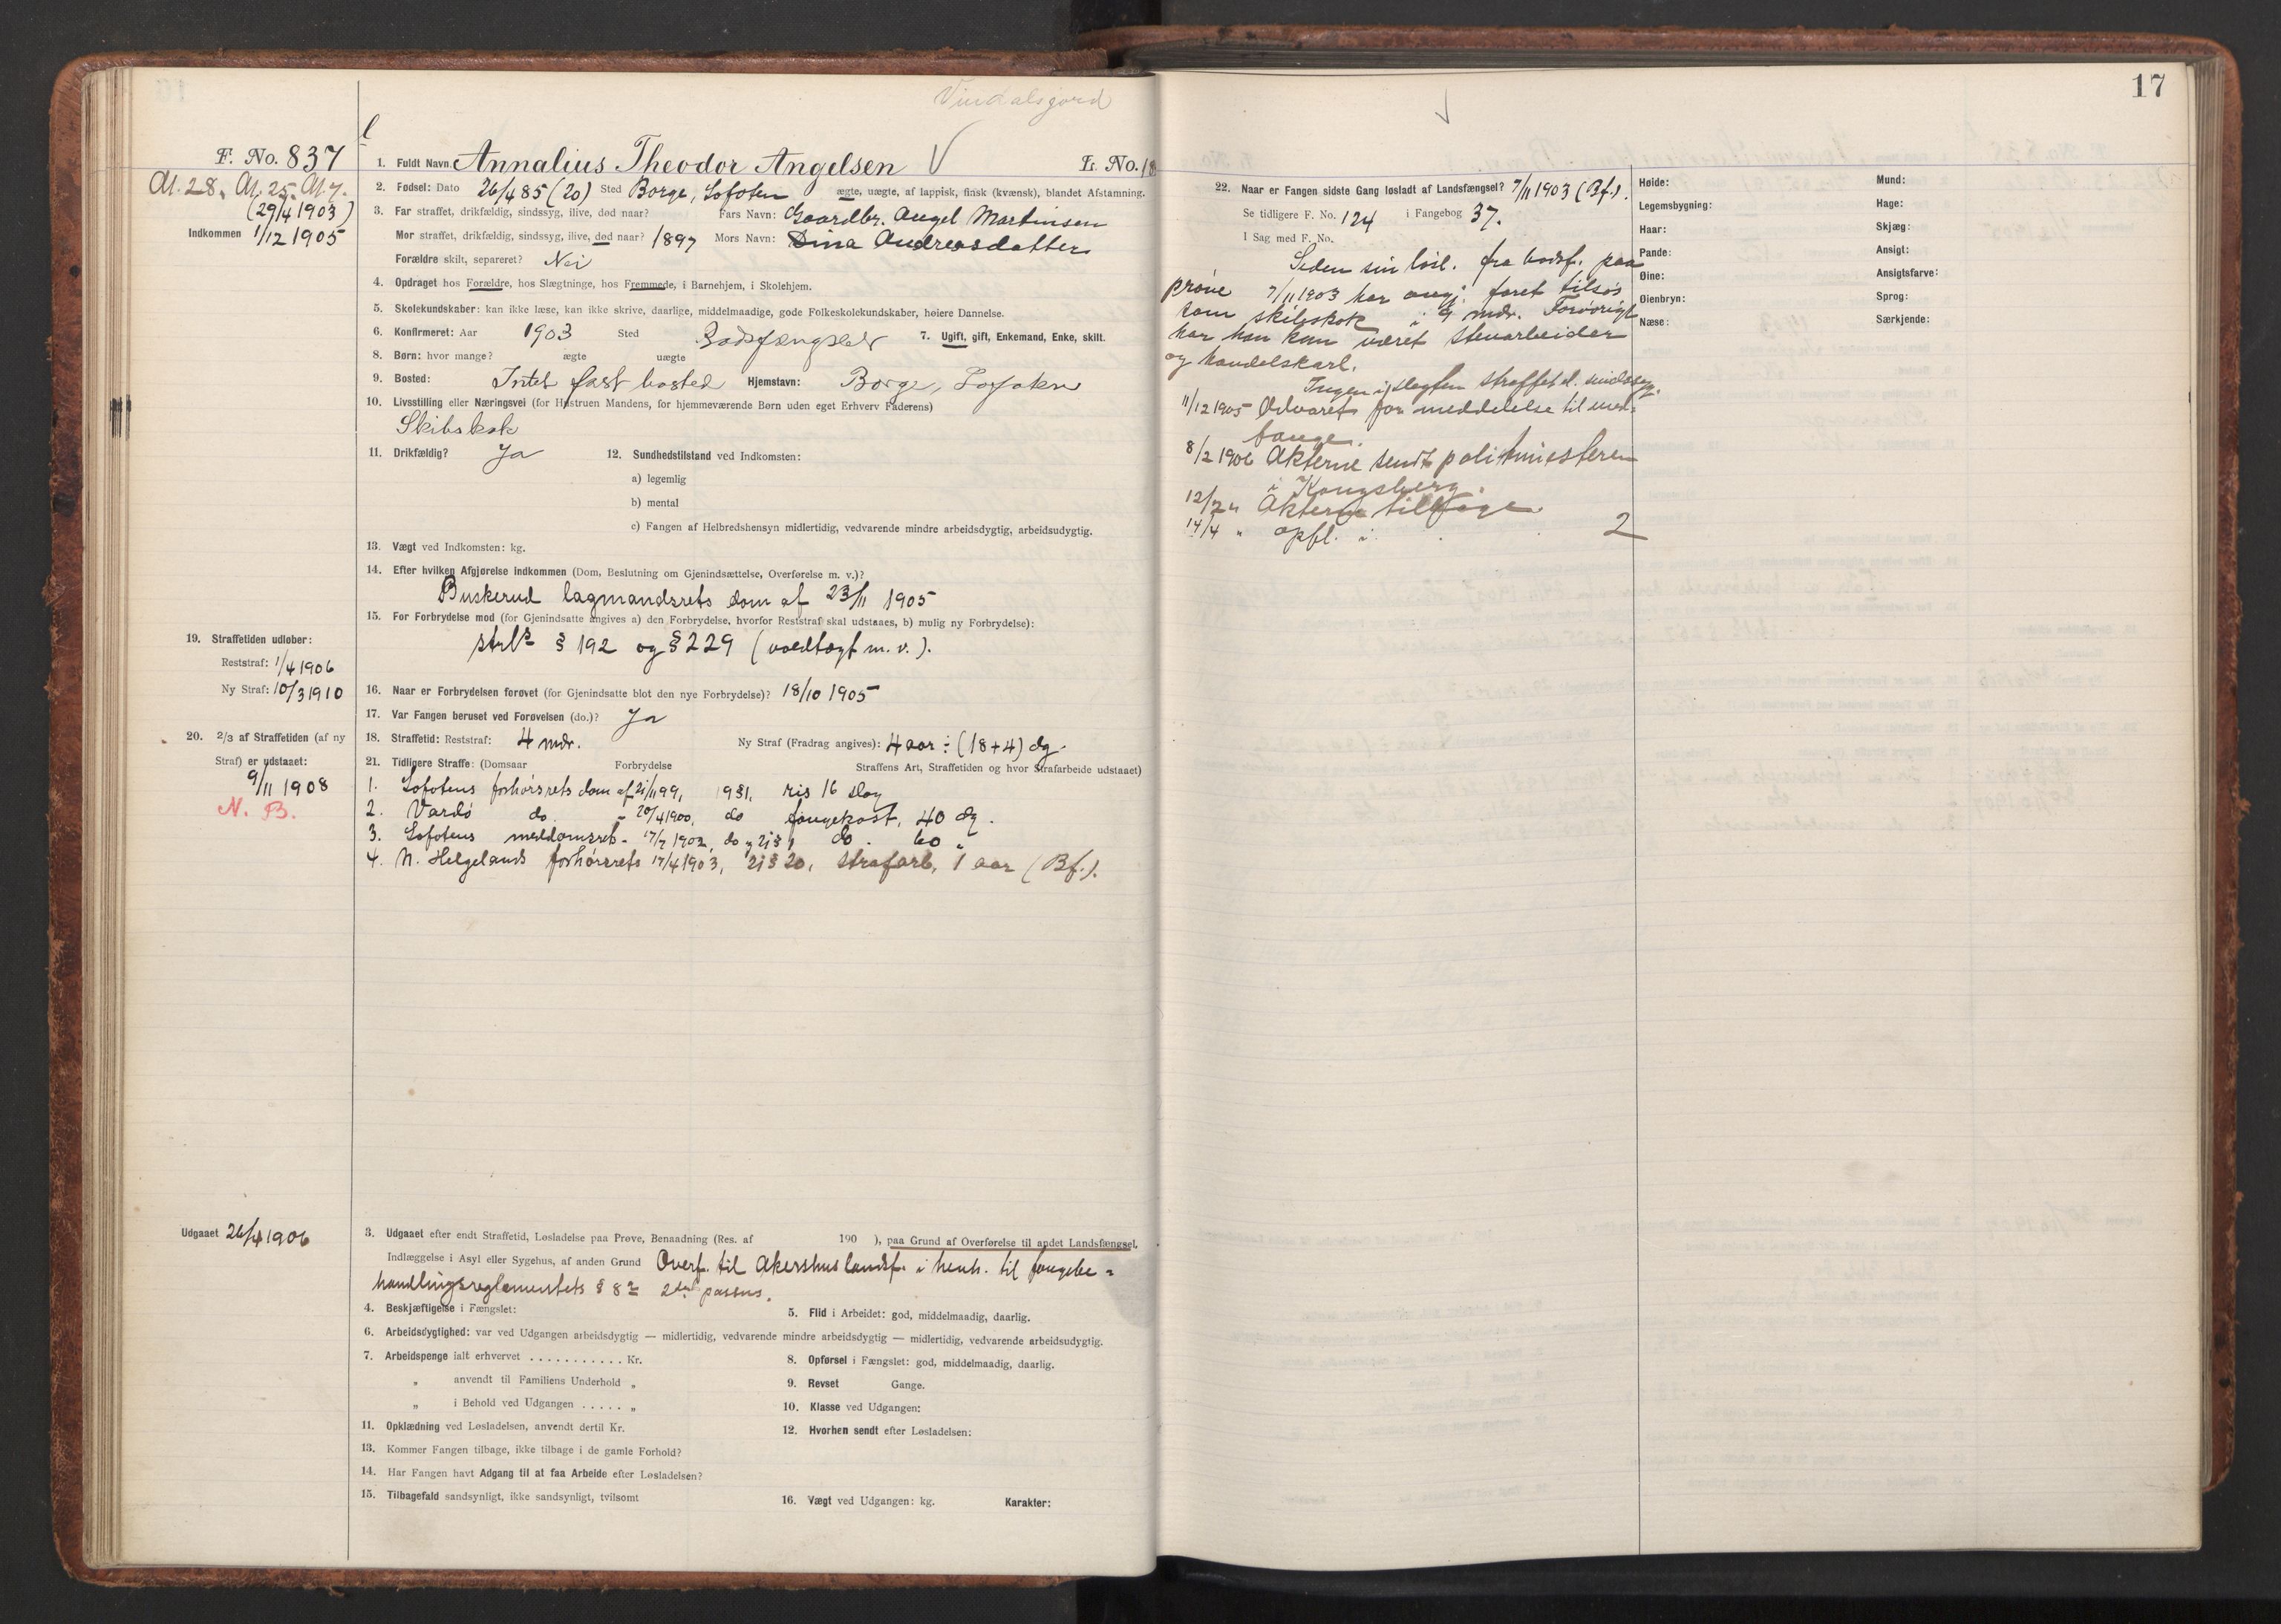 Vindalsgjord
F. No. 837
1. Fuldt Navn. Annalius Theodor Angelsen V L. No. 18
Al. 28. Al. 25. Al. 7.
(29/4 1903)
Indkommen 1/12 1905
2. Fødsel: Dato 26/4 85 (20) Sted Borge, Lofoten ægte, uægte, af lappisk, finsk (kvænsk), blandet Afstamning.
3. Far straffet, drikfældig, sindssyg, ilive, død naar? Fars Navn: Gaardbr. Angel Martinsen
Mor straffet, drikfældig, sindssyg, ilive, død naar? 1897 Mors Navn: Dina Andreasdatter
Forældre skilt, separeret? Nei
4. Opdraget hos Forældre, hos Slægtninge, hos Fremmede, i Barnehjem, i Skolehjem.
5. Skolekundskaber: kan ikke læse, kan ikke skrive, daarlige, middelmaadige, gode Folkeskolekundskaber, høiere Dannelse.
6. Konfirmeret: Aar 1903 Sted Bodsfængslet 7. Ugift, gift, Enkemand, Enke, skilt.
8. Børn: hvor mange? ægte uægte
9. Bosted: Intet fast bosted Hjemstavn: Borge, Lofoten
10. Livsstilling eller Næringsvei (for Hustruen Mandens, for hjemmeværende Børn uden eget Erhverv Faderens)
Skibskok
11. Drikfældig? Ja 12. Sundhedstilstand ved Indkomsten:
a) legemlig
b) mental
c) Fangen af Helbredshensyn midlertidig, vedvarende mindre arbeidsdygtig, arbeidsudygtig.
13. Vægt ved Indkomsten: kg.
14. Efter hvilken Afgjørelse indkommen (Dom, Beslutning om Gjenindsættelse, Overførelse m. v.)?
Buskerud lagmandsrets dom af 23/11 1905
15. For Forbrydelse mod (for Gjenindsatte angives a) den Forbrydelse, hvorfor Reststraf skal udstaaes, b) mulig ny Forbrydelse):
strl's § 192 og § 229 (voldtægt m. v.).
19. Straffetiden udløber:
Reststraf: 1/4 1906
Ny Straf: 10/3 1910
16. Naar er Forbrydelsen forøvet (for Gjenindsatte blot den nye Forbrydelse)? 18/10 1905
17. Var Fangen beruset ved Forøvelsen (do.)? Ja
20. 2/3 af Straffetiden (af ny
Straf) er udstaaet:
9/11 1908
N. B.
18. Straffetid: Reststraf: 4 mdr. Ny Straf (Fradrag angives): 4 aar ÷ (18+4) dg.
21. Tidligere Straffe: (Domsaar Forbrydelse Straffens Art, Straffetiden og hvor Strafarbeide udstaaet)
1. Lofotens forhørsrets dom af 21/11 99, 19 § 1, ris 16 slag
2. Vardø do. - 20/4 1900, do fangekost, 40 dg.
3. Lofotens meddomsret - 17/7 1902, do og 21 § 1 do. 60 "
4. N. Helgelands forhørsrets 17/4 1903, 21 § 20, strafarb, 1 aar (Bf.).
Udgaaet 26/4 1906
3. Udgaaet efter endt Straffetid, Løsladelse paa Prøve, Benaadning (Res. af 190 ), paa Grund af Overførelse til andet Landsfængsel,
Indlæggelse i Asyl eller Sygehus, af anden Grund Overf. til Akershus landsf. i henh. til fangebe-
handlingsreglementets § 8 2det passus.
4. Beskjæftigelse i Fængslet: 5. Flid i Arbeidet: god, middelmaadig, daarlig.
6. Arbeidsdygtighed: var ved Udgangen arbeidsdygtig — midlertidig, vedvarende mindre arbeidsdygtig — midlertidig, vedvarende arbeidsudygtig.
7. Arbeidspenge ialt erhvervet . . . . . . . . . . . Kr. 8. Opførsel i Fængslet: god, middelmaadig, daarlig.
„ anvendt til Familiens Underhold „ 9. Revset Gange.
„ i Behold ved Udgangen . . . . . „ 10. Klasse ved Udgangen:
11. Opklædning ved Løsladelsen, anvendt dertil Kr. 12. Hvorhen sendt efter Løsladelsen:
13. Kommer Fangen tilbage, ikke tilbage i de gamle Forhold?
14. Har Fangen havt Adgang til at faa Arbeide efter Løsladelsen?
15. Tilbagefald sandsynligt, ikke sandsynligt, tvilsomt 16. Vægt ved Udgangen: kg. Karakter:
17
22. Naar er Fangen sidste Gang løsladt af Landsfængsel? 7/11 1903 (Bf.).
Se tidligere F. No. 124 i Fangebog 37.
I Sag med F. No.
Siden sin løsl. fra bodsf. paa
prøve 7/11 1903 har angj. faret tilsøs
som skibskok i 9 mdr. Forøvrigt
har han kun været stenarbeider
og handelskarl.
Ingen i slegten straffet el. sindssyg.
11/12 1905 Advaret for meddelelse til med-
fange.
8/2 1906 Akterne sendt politimesteren
i Kongsberg.
12/2 " Akterne tilbage
14/4 " opfl. i 2
Høide:
Legemsbygning:
Haar:
Pande:
Øine:
Øienbryn:
Næse:
Mund:
Hage:
Skjæg:
Ansigt:
Ansigtsfarve:
Sprog:
Særkjende: